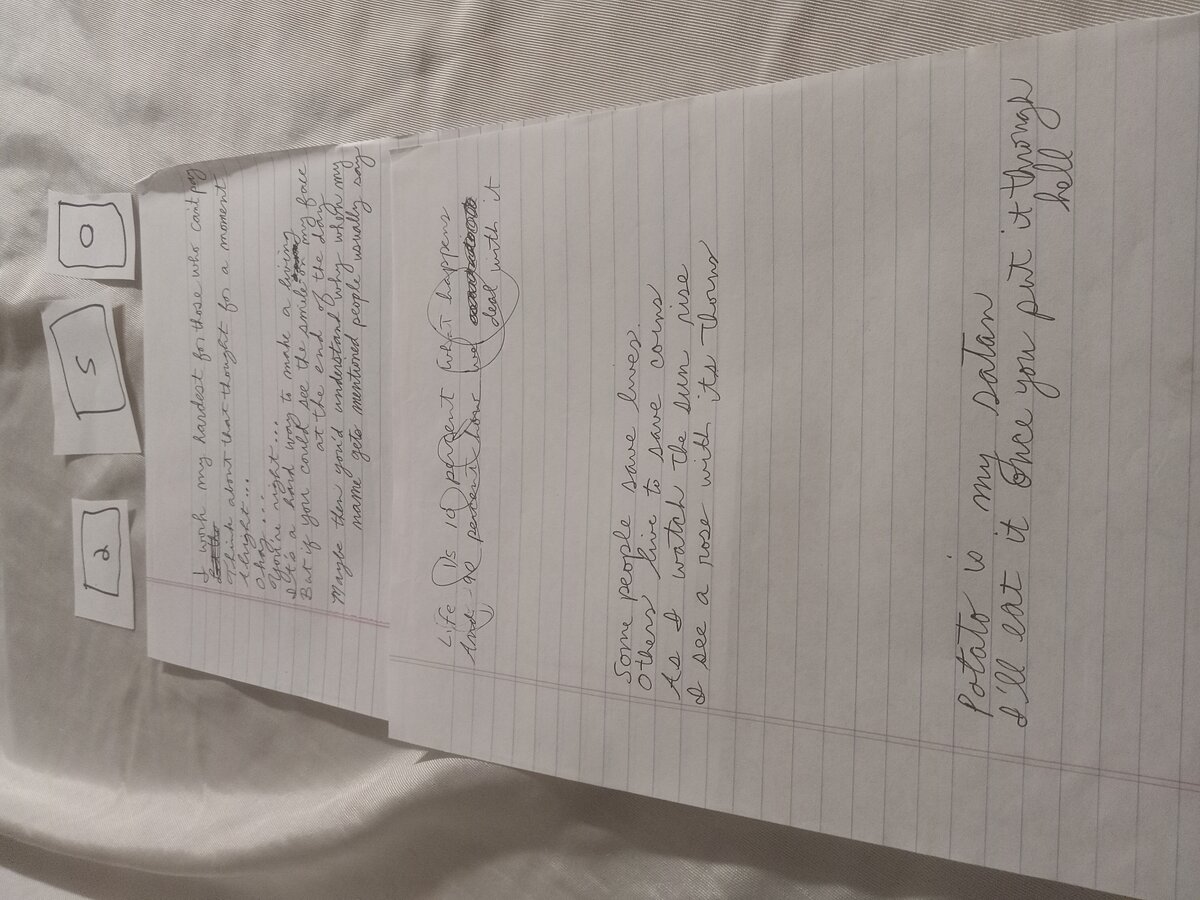 2 5 0
I work my hardest for those who can't pay
Think about that thought for a moment
Alright...
Okay...
You're right...
It's a hard way to make a living
But if you could see the smile on my face
at the end of the day
Maybe then you'd understand why when my
name gets mentioned people usually say
Life is 10 percent what happens
And 90 percent how we
deal with it
Some people save lives.
Others' live to save coins
As I watch the sun rise
I see a rose with its thorns
Potato is my satan
I'll eat it once you put it through
hell